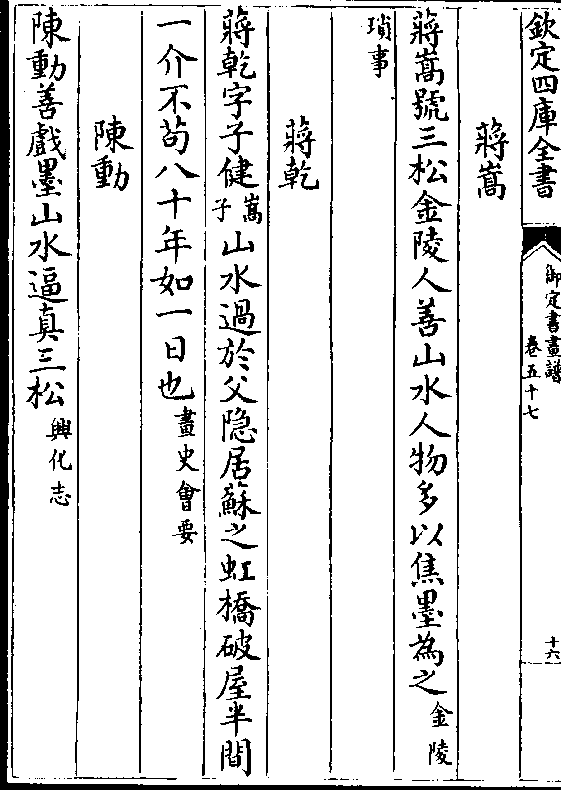 欽定四庫全書
御定書畫譜
卷五十七
十六
蔣嵩
蔣嵩號三松金陵人善山水人物多以焦墨為之金陵
瑣事
蔣乾
蔣乾字子健嵩子山水過於父隐居蘇之虹橋破屋半間
一介不苟八十年如一日也畫史會要
陳動
陳動善戲墨山水逼真三松興化志